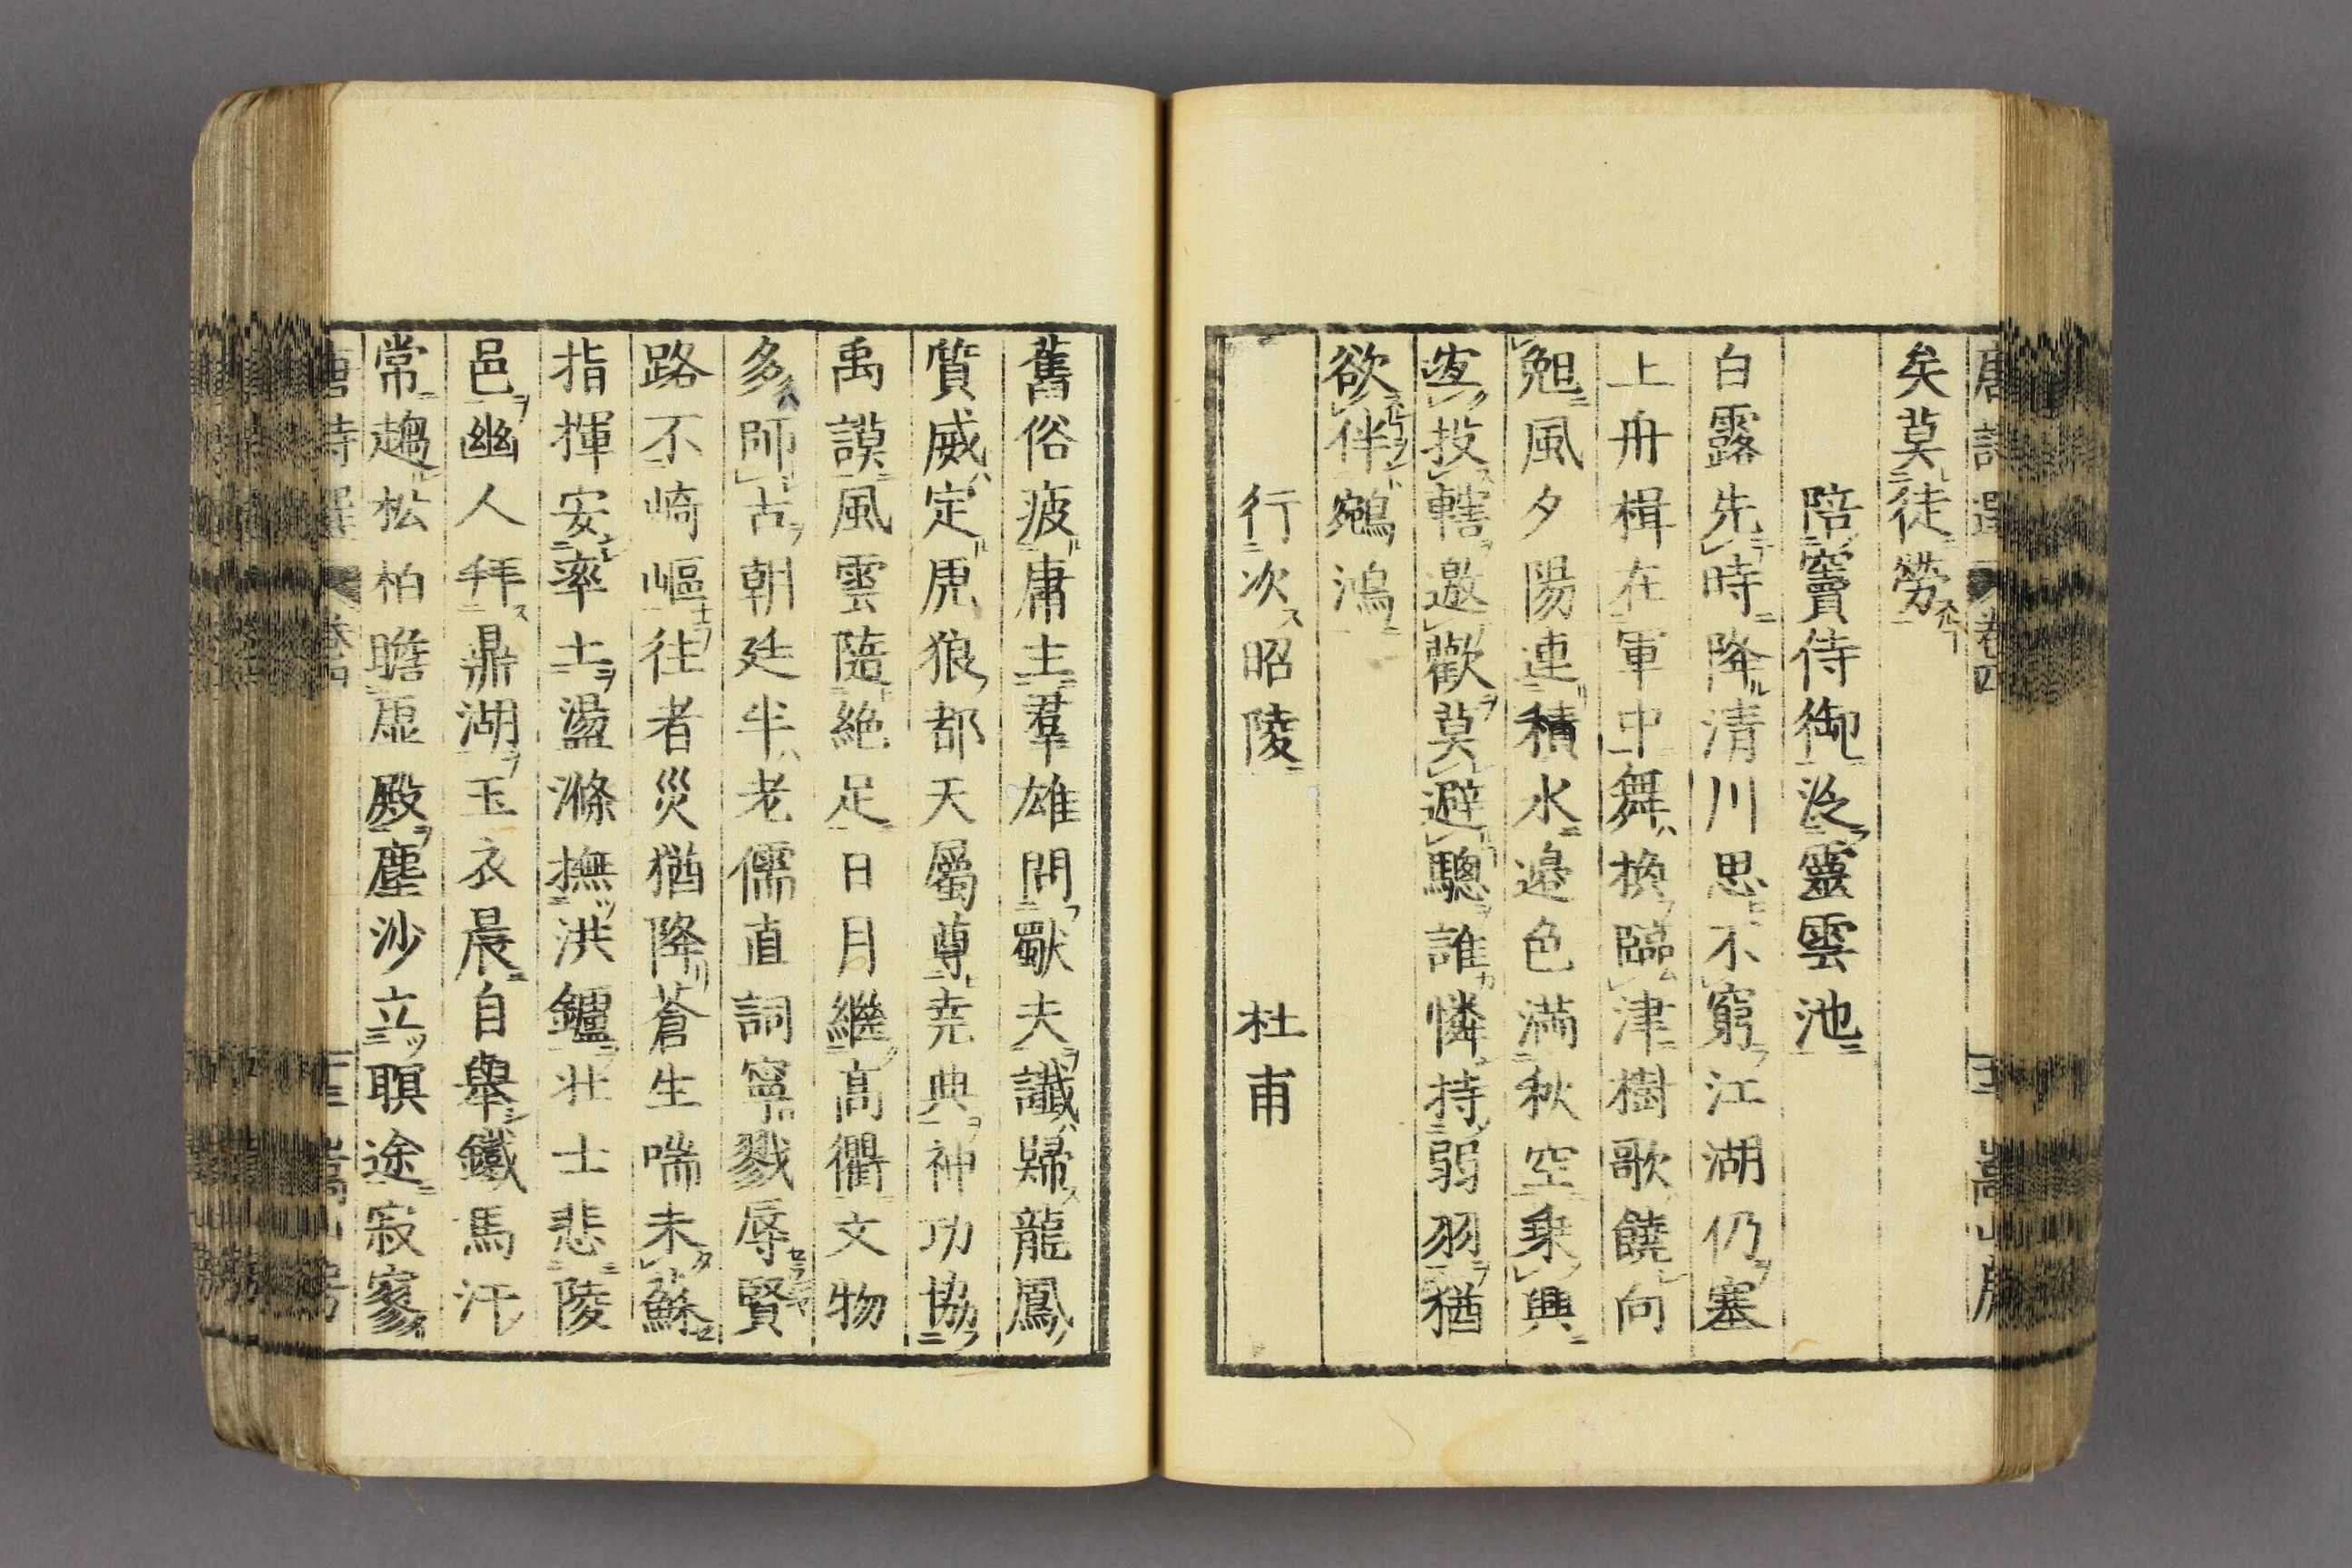 唐詩選 卷四
嵩山房
矣莫徒勞
陪竇侍御泛靈雲池
白露先時降清川思不窮江湖仍塞
上舟楫在軍中舞換臨津樹歌饒向
晚風夕陽連積水邊色滿秋空乗興
宜投轄邀歡莫避驄誰憐持弱羽猶
欲伴鵷鴻
行次昭陵 杜甫
舊俗疲庸主羣雄問獨夫讖歸龍鳳
質威定虎狼都天屬尊堯典神功協
禹謨風雲隨絕足日月繼高衢文物
多師古朝廷半老儒直詞寧戮辱賢
路不崎嶇往者災猶降蒼生喘未蘇
指揮安率土盪滌撫洪鑪壯士悲陵
邑幽人拜鼎湖玉衣晨自舉鐵馬汗
常趨松柏瞻虛殿塵沙立暝途寂寥
唐詩選 卷四 十三 嵩山房